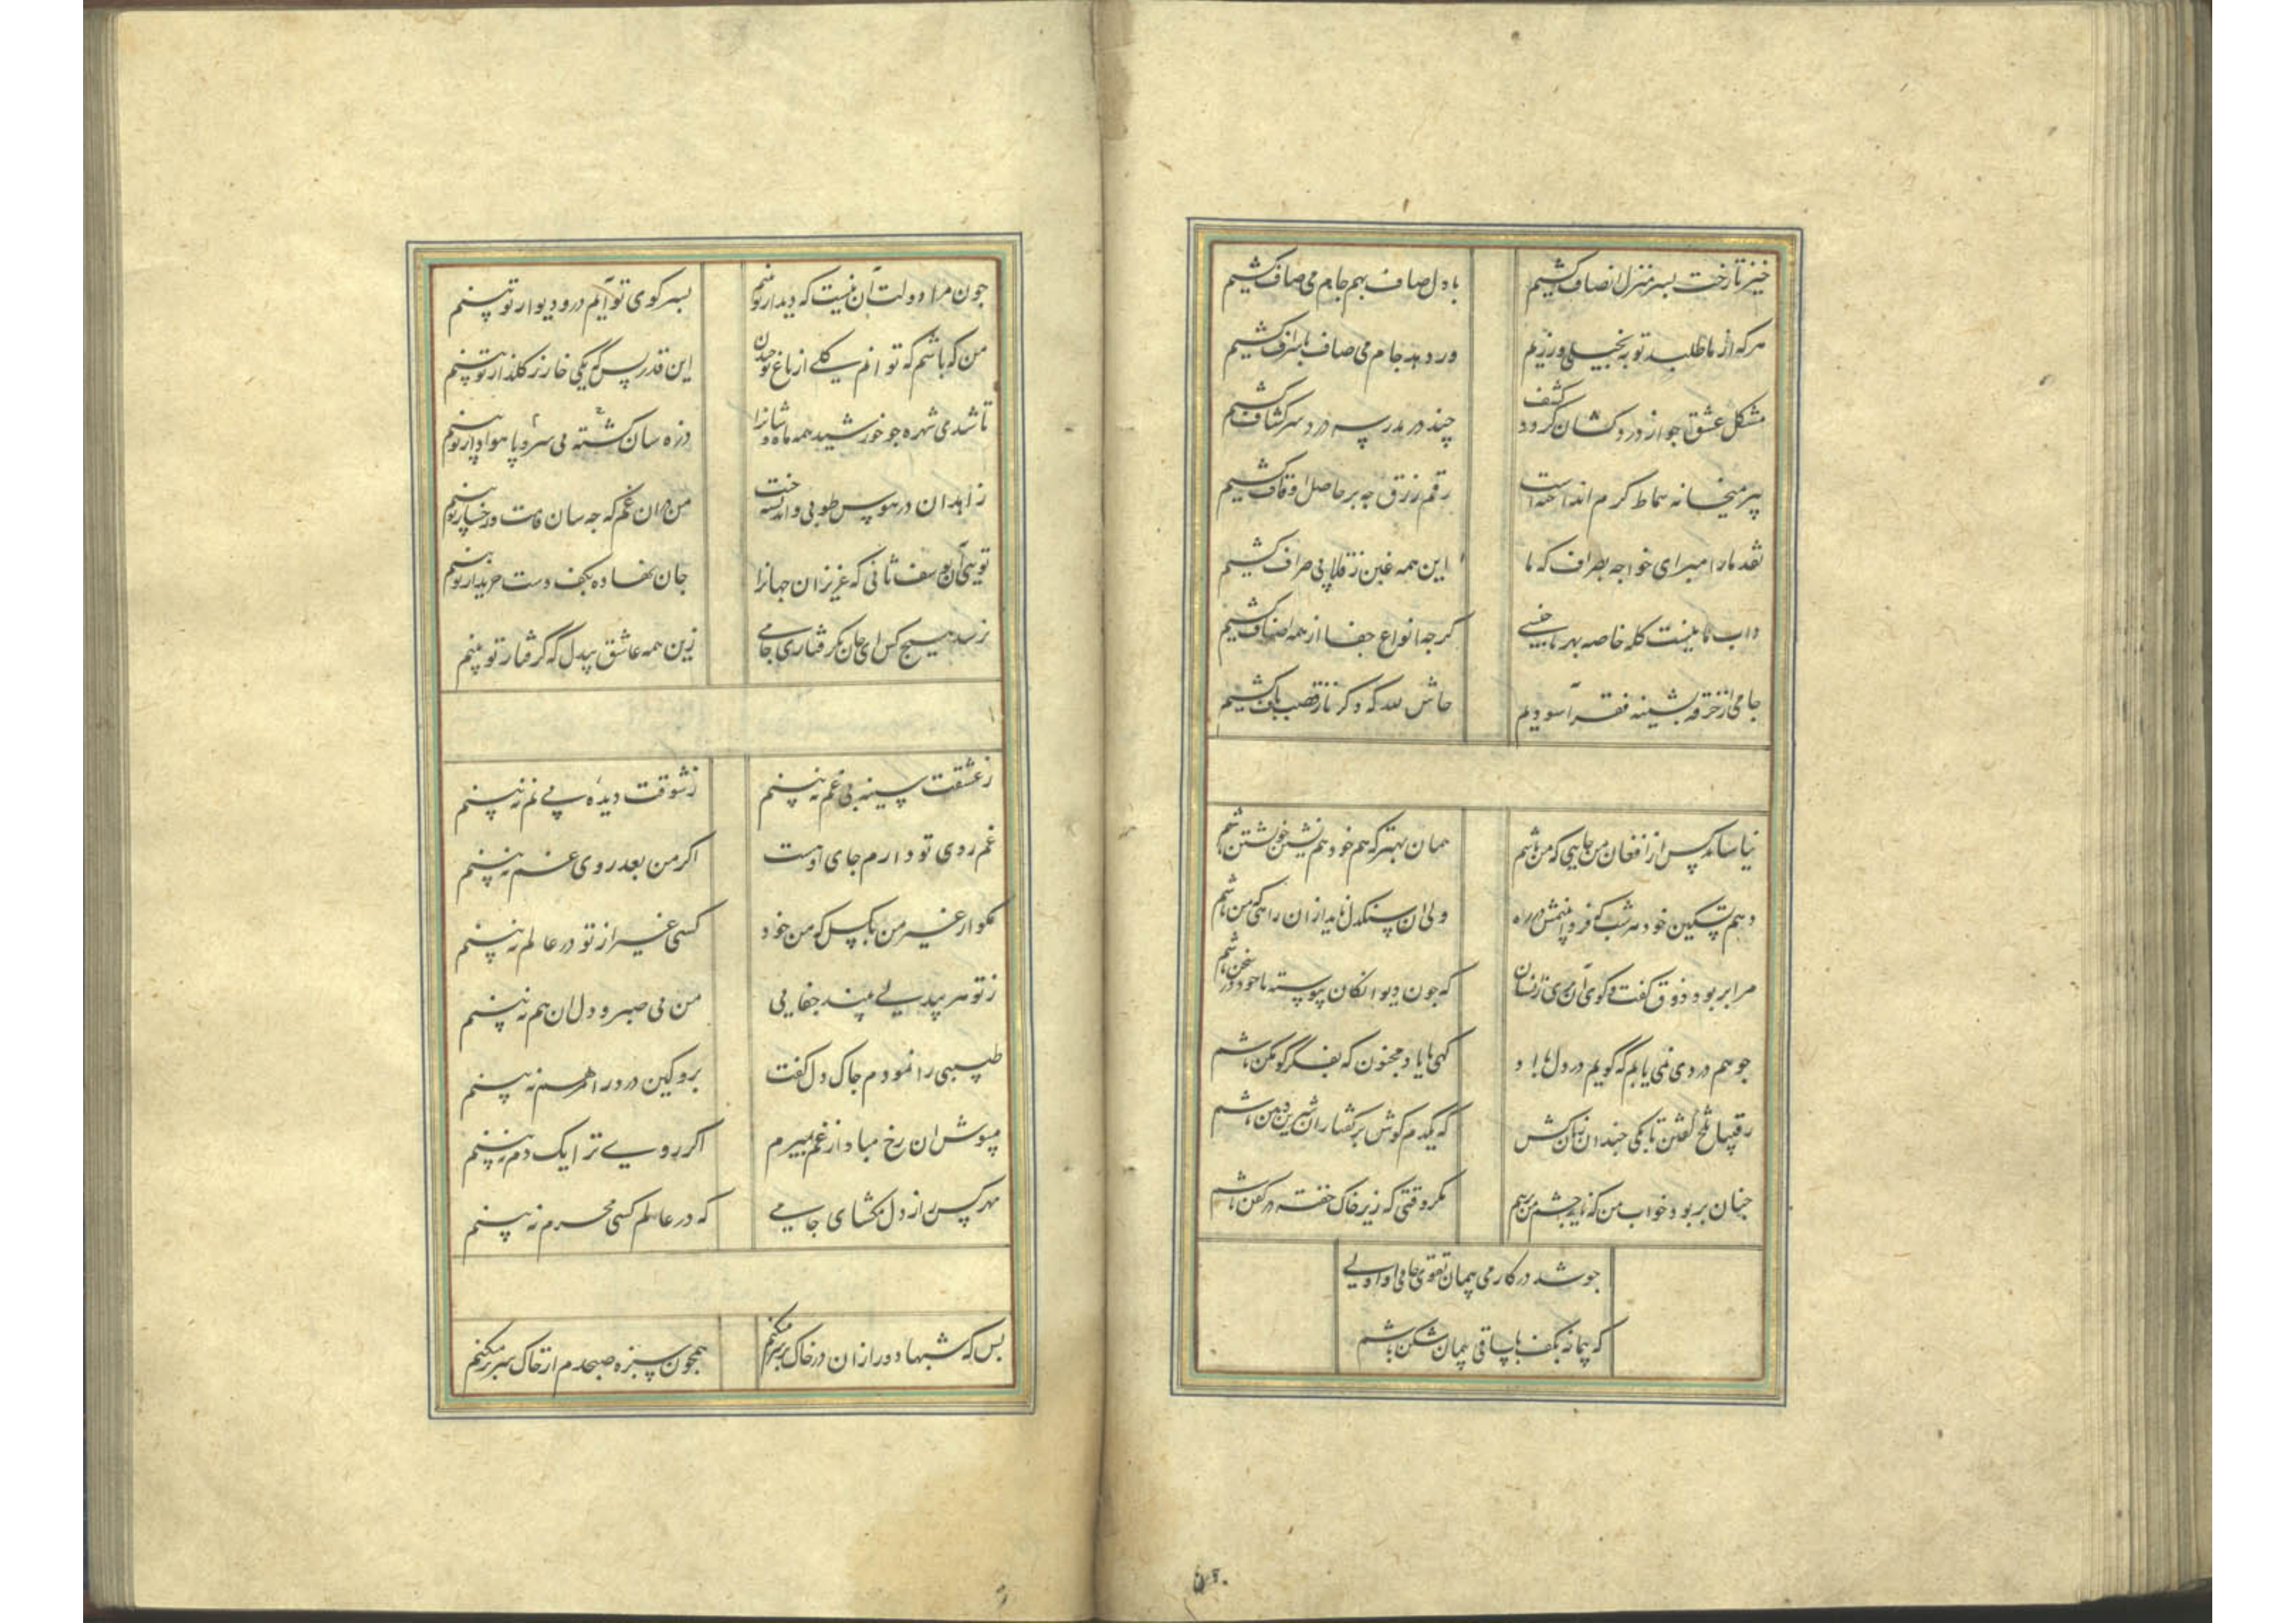 خیز تا رخت بسر منزل انصاف کشیم
با دل صاف بهم جام می صاف کشیم
هر که از ما طلبد توبه بخیلی ورزیم
ور دهد جام می صاف باسراف کشیم
مشکل عشق جو از درد کشان کشف کرود
چند در مدرسه درد سر کشاف کشیم
پیر میخانه سماط کرم انداخته است
رقم رزق چه بر حاصل اوقاف کشیم
نقد ما را مبر ای خواجه بصراف که ما
این همه غبن ز قلابی صراف کشیم
داب ما نیست کله خاصه بهر ناجنسی
کرچه انواع جفا از همه اصناف کشیم
جامی از خرقه پشینه فقر آسودیم
حاش لله که دکر ناز قصب باف کشیم
نیاساید کس از افغان من جایی که من باشم
همان بهتر که هم خود همنشین خویشتن باشم
دهم تسکین خود هر شب که فردا بینمش در راه
ولی ان سنکدل ناید از ان راهی که من باشم
مرا بربود ذوق کفت و کوی آن پری زانسان
که جون دیوانکان پیوسته با خود در سخن باشم
جو هم دردی نمی یابم که کویم درد دل با او
کهی با یاد مجنون که بفکر کوهکن باشم
رقیبا تلخ کفتن تا بکی چندان زبان کش
که یکدم کوش بر کفتار ان شیرین دهن باشم
جنان بربود خواب من که ناید چشم من برهم
مکر وقتی که زیر خاک خفته در کفن باشم
جو شد در کار می پیمان تقوی جامی او اولی
که پیمانه بکف با ساقی پیمان شکن باشم
جون مرا دولت آن نیست که دیدار تو بینم
بسر کوی تو آیم در و دیوار تو بینم
من که باشم که توانم کلی از باغ تو چیدن
این قدر بس که یکی خار ز کلزار تو بینم
تا شدی شهره جو خورشید همه ماه وشانرا
ذره سان کشته بی سر و پا هوادار تو بینم
زاهدان در هوس طوبی و اندیشه جنت
من در ان غم که جه سان قامت و رخسار تو بینم
تویی آن یوسف ثانی که عزیزان جهانرا
جان نهاده بکف دست خریدار تو بینم
نرسد هیچ کس ای جان بکرفتاری جامی
زین همه عاشق بیدل که کرفتار تو بینم
ز عشقت سینه بی غم نه بینم
ز شوقت دیده بی نم نه بینم
غم روی تو دارم جای اوست
اکر من بعد روی غم نه بینم
مکو از غیر من بکسل که من خود
کسی غیر از تو در عالم نه بینم
ز تو هر بیدلی بیند جفایی
من بی صبر و دل ان هم نه بینم
طبیبی را نمودم جاک دل کفت
برو کین درد را مرهم نه بینم
مپوش ان رخ مبادا از غم بمیرم
اکر روی ترا یک دم نه بینم
مهر کس راز دل مکشای جامی
که در عالم کسی محرم نه بینم
بس که شبها دور از ان در خاک بر سر میکنم
همجون سبزه صبحدم از خاک سر بر میکنم